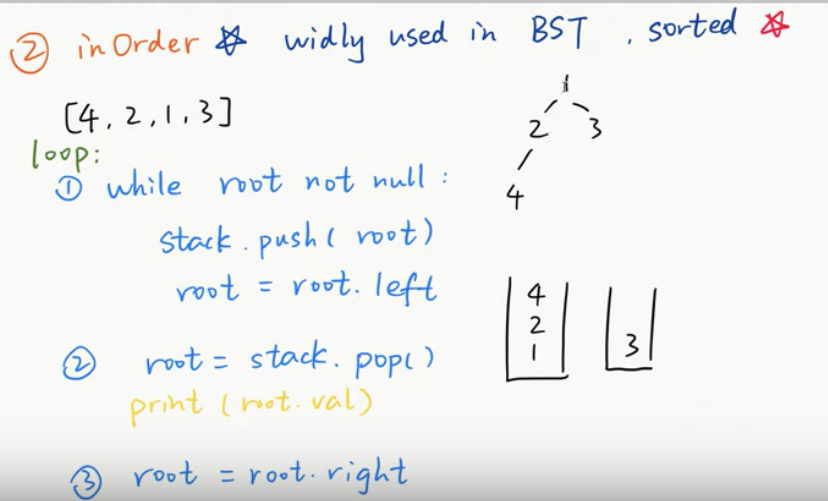 ② inOrder ☆ widly used in BST , sorted ☆
[4, 2, 1, 3]
loop:
① while root not null :
stack . push ( root)
root = root. left
② root = stack . pop( )
print ( root. val)
③ root = root. right
1
2 3
4
4
2
1
3